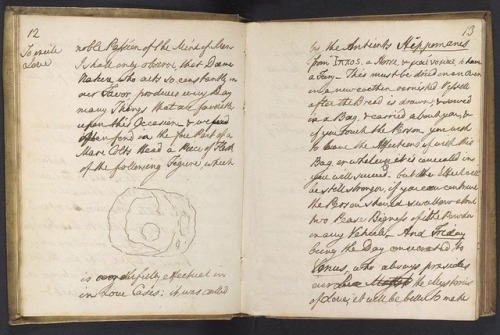 12
To excite
Love
noble Passion of the Mind of Man
I shall only observe, that Dame
Nature, who acts so constantly in
our Favor, produces every Day
many Things that are
upon this Occasion & we
often find in the fore Part of a
Mare Colts Head a Piece of Flesh
of the following Figure which
is wonderfully effectual in
in Love Cases; it was called
13
by the Antients Hippomanes
from Ιππος, a Horse &
a Fury. This must be dried in an Oven
in a new earthen varnished Vessell
after the Bread is drawn, &
in a Bag, & carried about you, &
if you touch the Person, you wish
to have the Affections of with this
Bag, or whatever it is concealed in
you will succeed. but the Effect will
be still stronger, if you can contrive
the Person should swallow about
two Pease Bigness of the Powder
in any Vehicle, And Friday
being the Day consecrated to
Venus, who always presides
over the Mysteries
of Love, it will be best to make